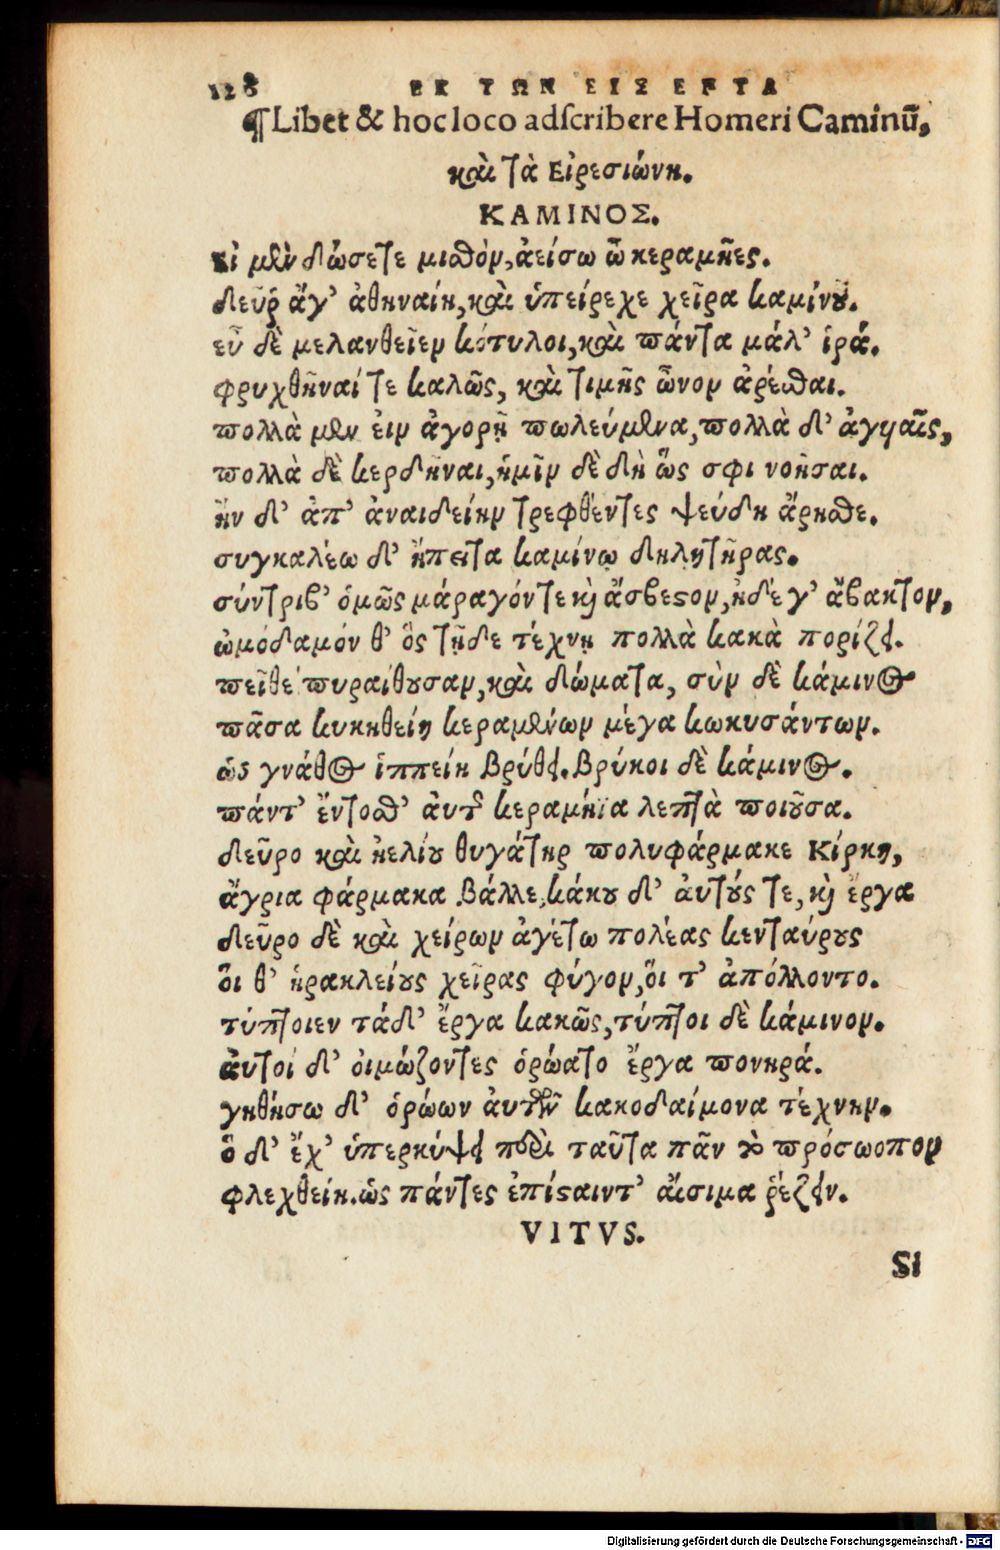 128 ΕΚ ΤΩΝ ΕΙΣ ΕΠΤΑ
¶Libet & hoc loco adscribere Homeri Caminū,
καὶ τὰ Εἰρεσιώνη.
ΚΑΜΙΝΟΣ.
εἰ μὲν δώσετε μισθὸν, ἀείσω ὦ κεραμῆες.
δεῦρ ἄγ’ ἀθηναίη, καὶ ὑπείρεχε χεῖρα καμίνου.
εὖ δὲ μελανθεῖεν κότυλοι, καὶ πάντα μάλ’ ἱρά.
φρυχθῆναί τε καλῶς, καὶ τιμῆς ὦνον ἀρέσθαι.
πολλὰ μὲν εἰν ἀγορῇ πωλεύμενα, πολλὰ δ’ ἀγυιαῖς,
πολλὰ δὲ κερδῆναι, ἡμῖν δὲ δὴ ὥς σφι νοῆσαι.
ἢν δ’ ἀπ’ ἀναιδείην τρεφθέντες ψεύδη ἄρησθε.
συγκαλέω δ’ ἤπειτα καμίνῳ δηλητῆρας.
σύντριβ’ ὁμῶς μάραγόν τε καὶ ἄσβεστον, ἠδέ γ’ ἄβακτον,
ὠμόδαμόν θ’ ὃς τῇδε τέχνῃ πολλὰ κακὰ πορίζει.
πεῖθε πυραίθουσαν, καὶ δώματα, σὺν δὲ κάμινος
πᾶσα κυκηθείη κεραμέων μέγα κωκυσάντων.
ὡς γνάθος ἱππείη βρύθει. βρύκοι δὲ κάμινος.
πάντ’ ἔντοσθ’ αὐτῆς κεραμήϊα λεπτὰ ποιοῦσα.
δεῦρο καὶ ἠελίου θυγάτηρ πολυφάρμακε Κίρκη,
ἄγρια φάρμακα βάλλε, κάκου δ’ αὐτούς τε, καὶ ἔργα
δεῦρο δὲ καὶ χείρων ἀγέτω πολέας κενταύρους
οἵ θ’ ἡρακλείους χεῖρας φύγον, οἵ τ’ ἀπόλλοντο.
τύπτοιεν τάδ’ ἔργα κακῶς, τύπτοι δὲ κάμινον.
αὐτοὶ δ’ οἰμώζοντες ὁρώατο ἔργα πονηρά.
γηθήσω δ’ ὁρόων αὐτῶν κακοδαίμονα τέχνην.
ὃ δ’ ἔχ’ ὑπερκύψει περὶ ταῦτα πᾶν τὸ πρόσωοπον
φλεχθείη. ὡς πάντες ἐπίσταιντ’ αἴσιμα ῥέζειν.
VITVS.
Si
Digitalisierung gefördert durch die Deutsche Forschungsgemeinschaft - DFG